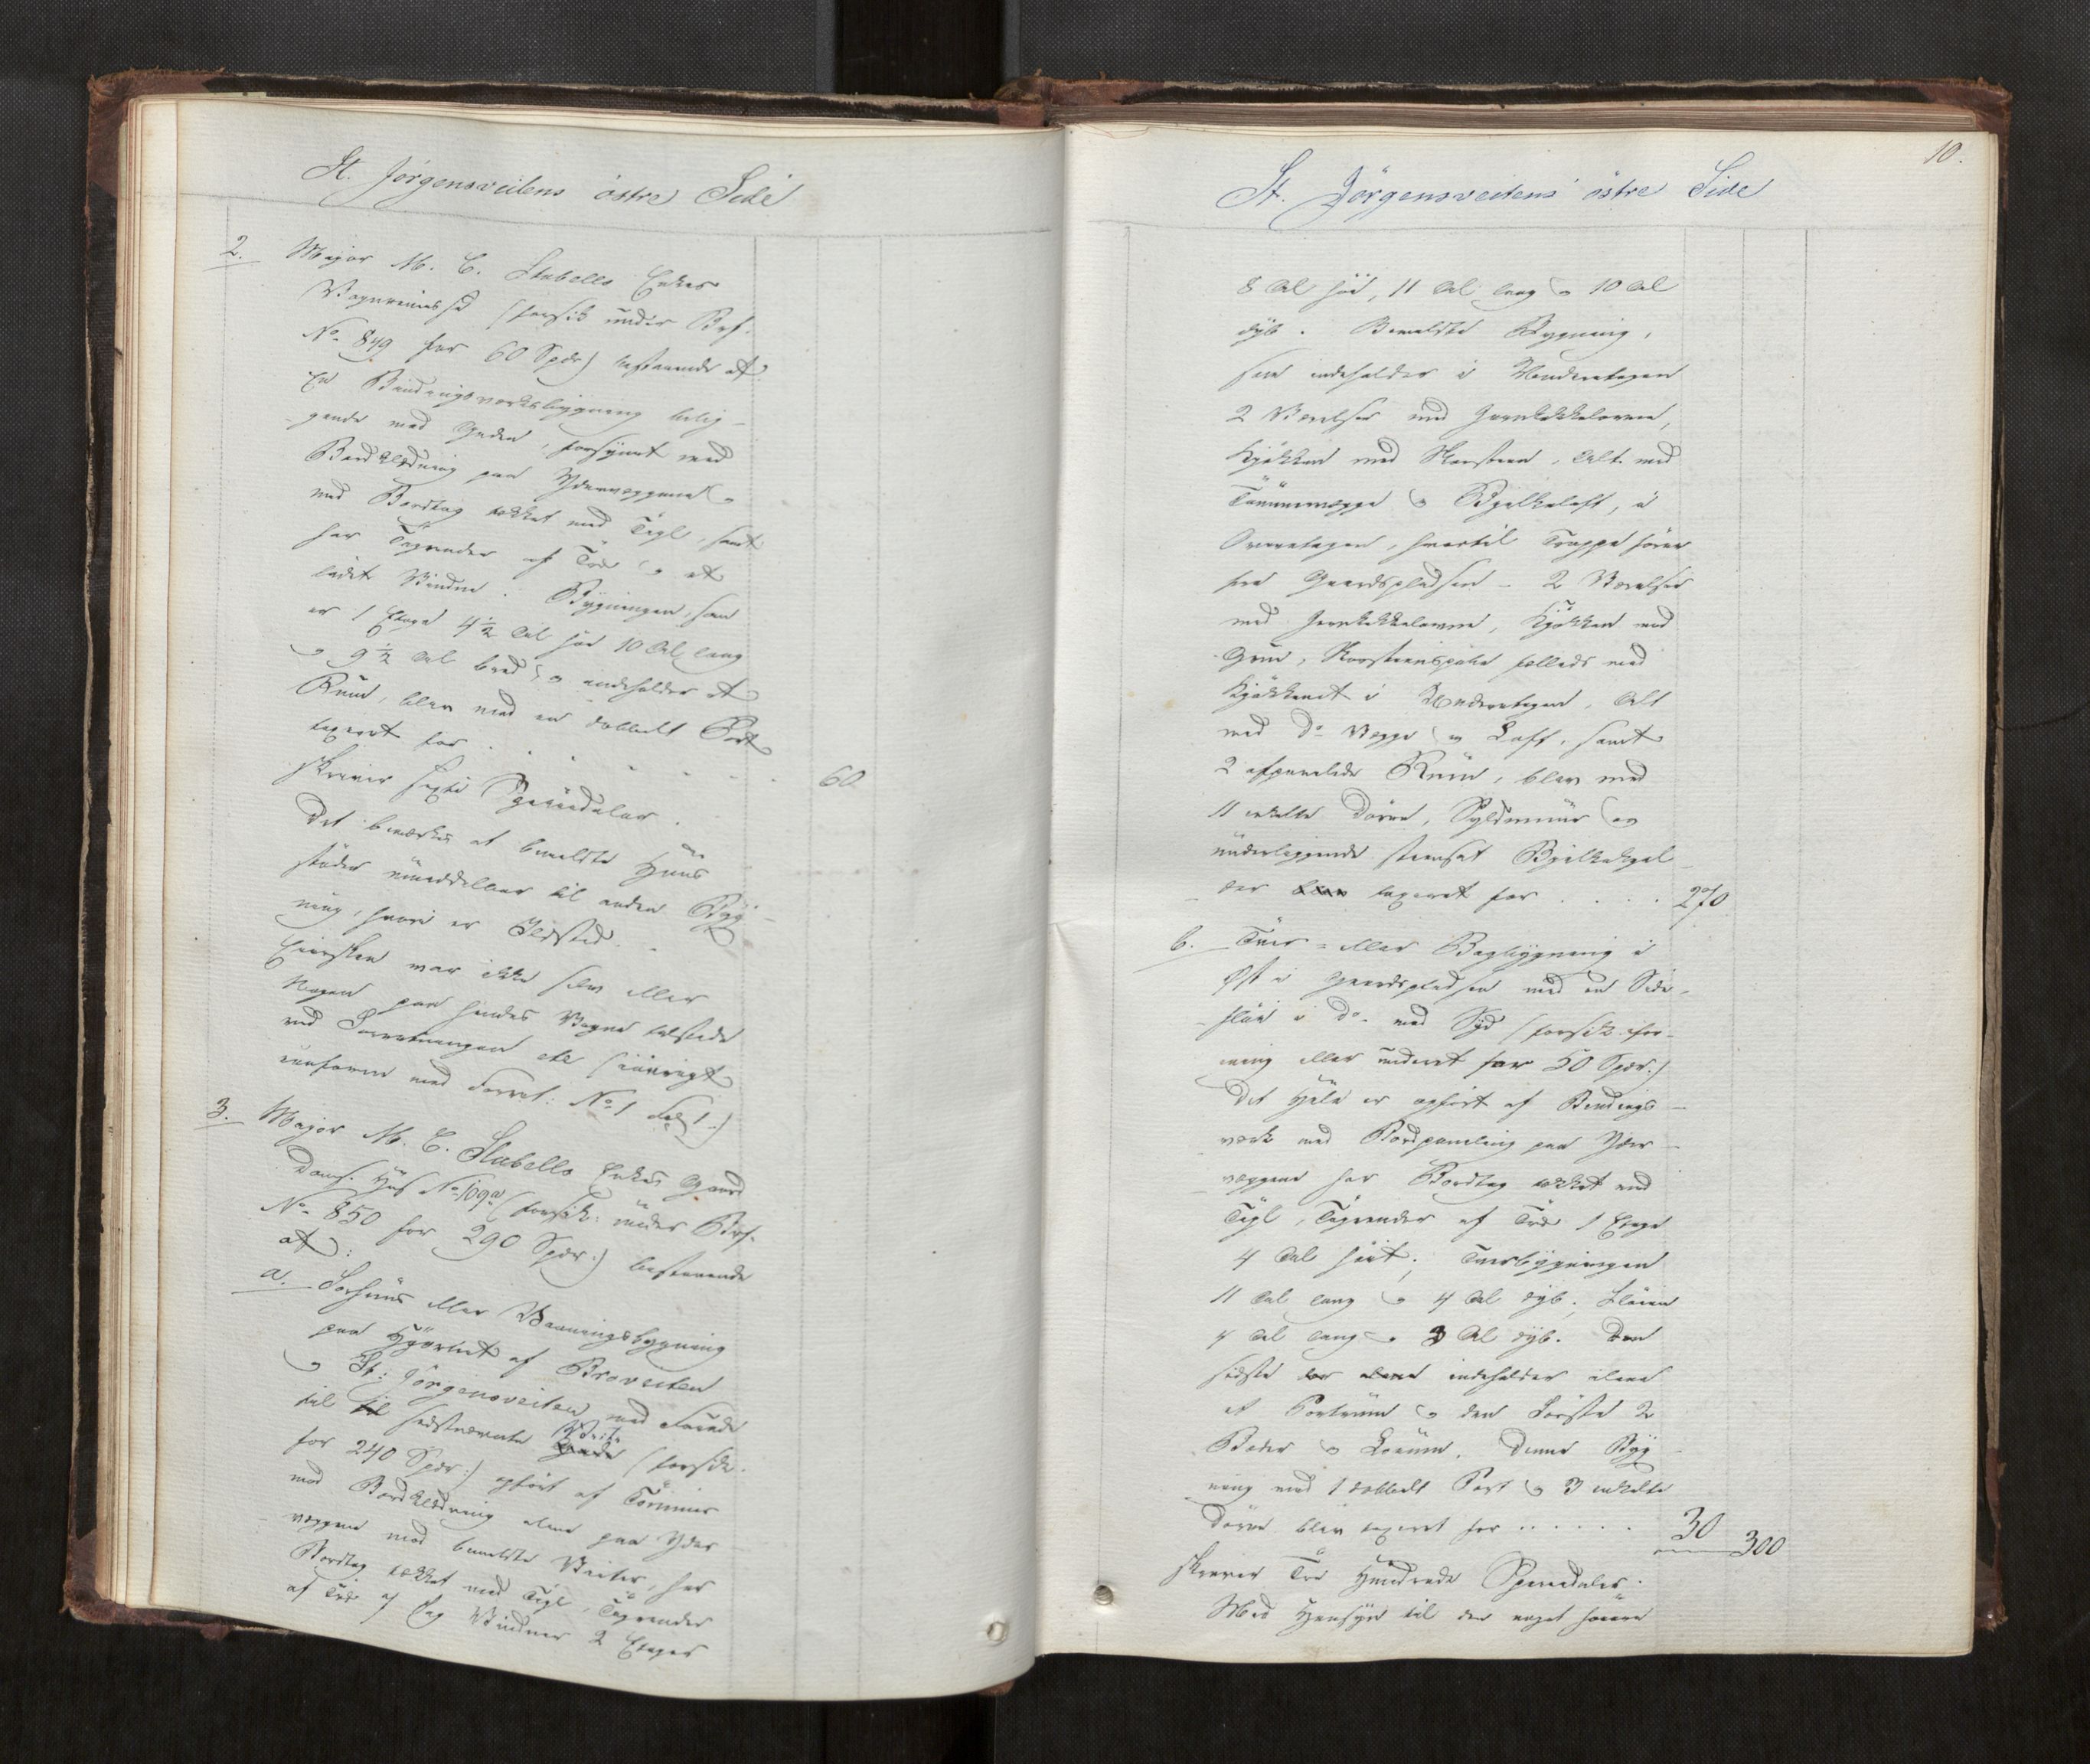 St. Jørgensveitens østre Side
2. Major M. C. Stabells Enkes
Vognremisse (forsik under Brf.
No 849 for 60 Spdr) bestaaende af
En Bindingsværksbygning belig-
gende med Gaden, forsynet med
Bordklædning paa Ydervæggene og
med Bordtag tækket med Tegl, samt
har Tagrender af Træ og et
Vindue. Bygningen, som
er 1 Etage 4½ Al høi 10 Al lang
og 9½ Al bred, og indeholder et
Rum, blev med en dobbelt Port
taxeret for . . . . . . 60
skriver sexti Speciedaler.
Det bemærkes at bemeldte Huus
støder umiddelbar til anden Byg-
ning, hvori er Ildsted.
Eiersken var ikke selv eller
Nogen paa hendes Vegne tilstede
ved Forretningen etc (iøvrigt
conform med Forret: No 1 Fol 1.)
3. Major M. C. Stabells Enkes Gaard
No 109a (forsik: under Brf.
No 850 for 290 Spdr.) bestaaende
af:
a. Forhuus eller Vaaningsbygning
paa Hjørnet af Broveiten
og St: Jørgensveiten, med Facade
til sidstnævnte Veite (forsik.
for 240 Spdr.) opført af Tømmer
med Bordklædning alene paa Yder-
væggene mod bemeldte Veiter, har
Bordtag tækket med Tegl, Tagrender
af Træ og Fag Vinduer 2 Etager
10.
St. Jørgensveitens østre Side
8 Al høi, 11 Al lang og 10 Al
dyb. Bemeldte Bygning,
som indeholder i Underetagen
2 Værelser med Jernkakkelovne,
Kjøkken med Skorsteen, Alt med
Tømmervægge og Bjelkeloft, i
Overetagen, hvortil Trappe fører
fra Gaardspladsen - 2 Værelser
med Jernkakkelovne, Kjøkken med
Gruve, Skorsteenspibe fælleds med
Kjøkkenet i Underetagen, Alt
med Do Vægge og Loft, samt
2 afpanelede Rum, blev med
11 enkelte Døre, Syldmuur og
underliggende steensat Bjelkekjel-
der taxeret for . . . . 270
b. Tver- eller Bagbygning i
Øst i Gaardspladsen med en Side-
fløi i Do mod Syd (forsik. for-
ening eller underet for 50 Spdr.)
Det Hele er opført af Bindings-
værk med Bordpaneling paa Yder-
væggene har Bordtag tækket med
Tegl, Tagrender af Træ 1 Etage
4 Al høit; Tverbygningen
11 Al lang og 4 Al dyb. Fløien
4 Al lang og 3 Al dyb. Den
sidste indeholder alene
et Portrum og den Første 2
Boder og Locum. Denne Byg-
ning med 1 dobbelt Port og 3 enkelte
Døre blev taxeret for . . . . . . 30 300
skriver Tre Hundrede Speciedaler.
Med Hensyn til den noget større